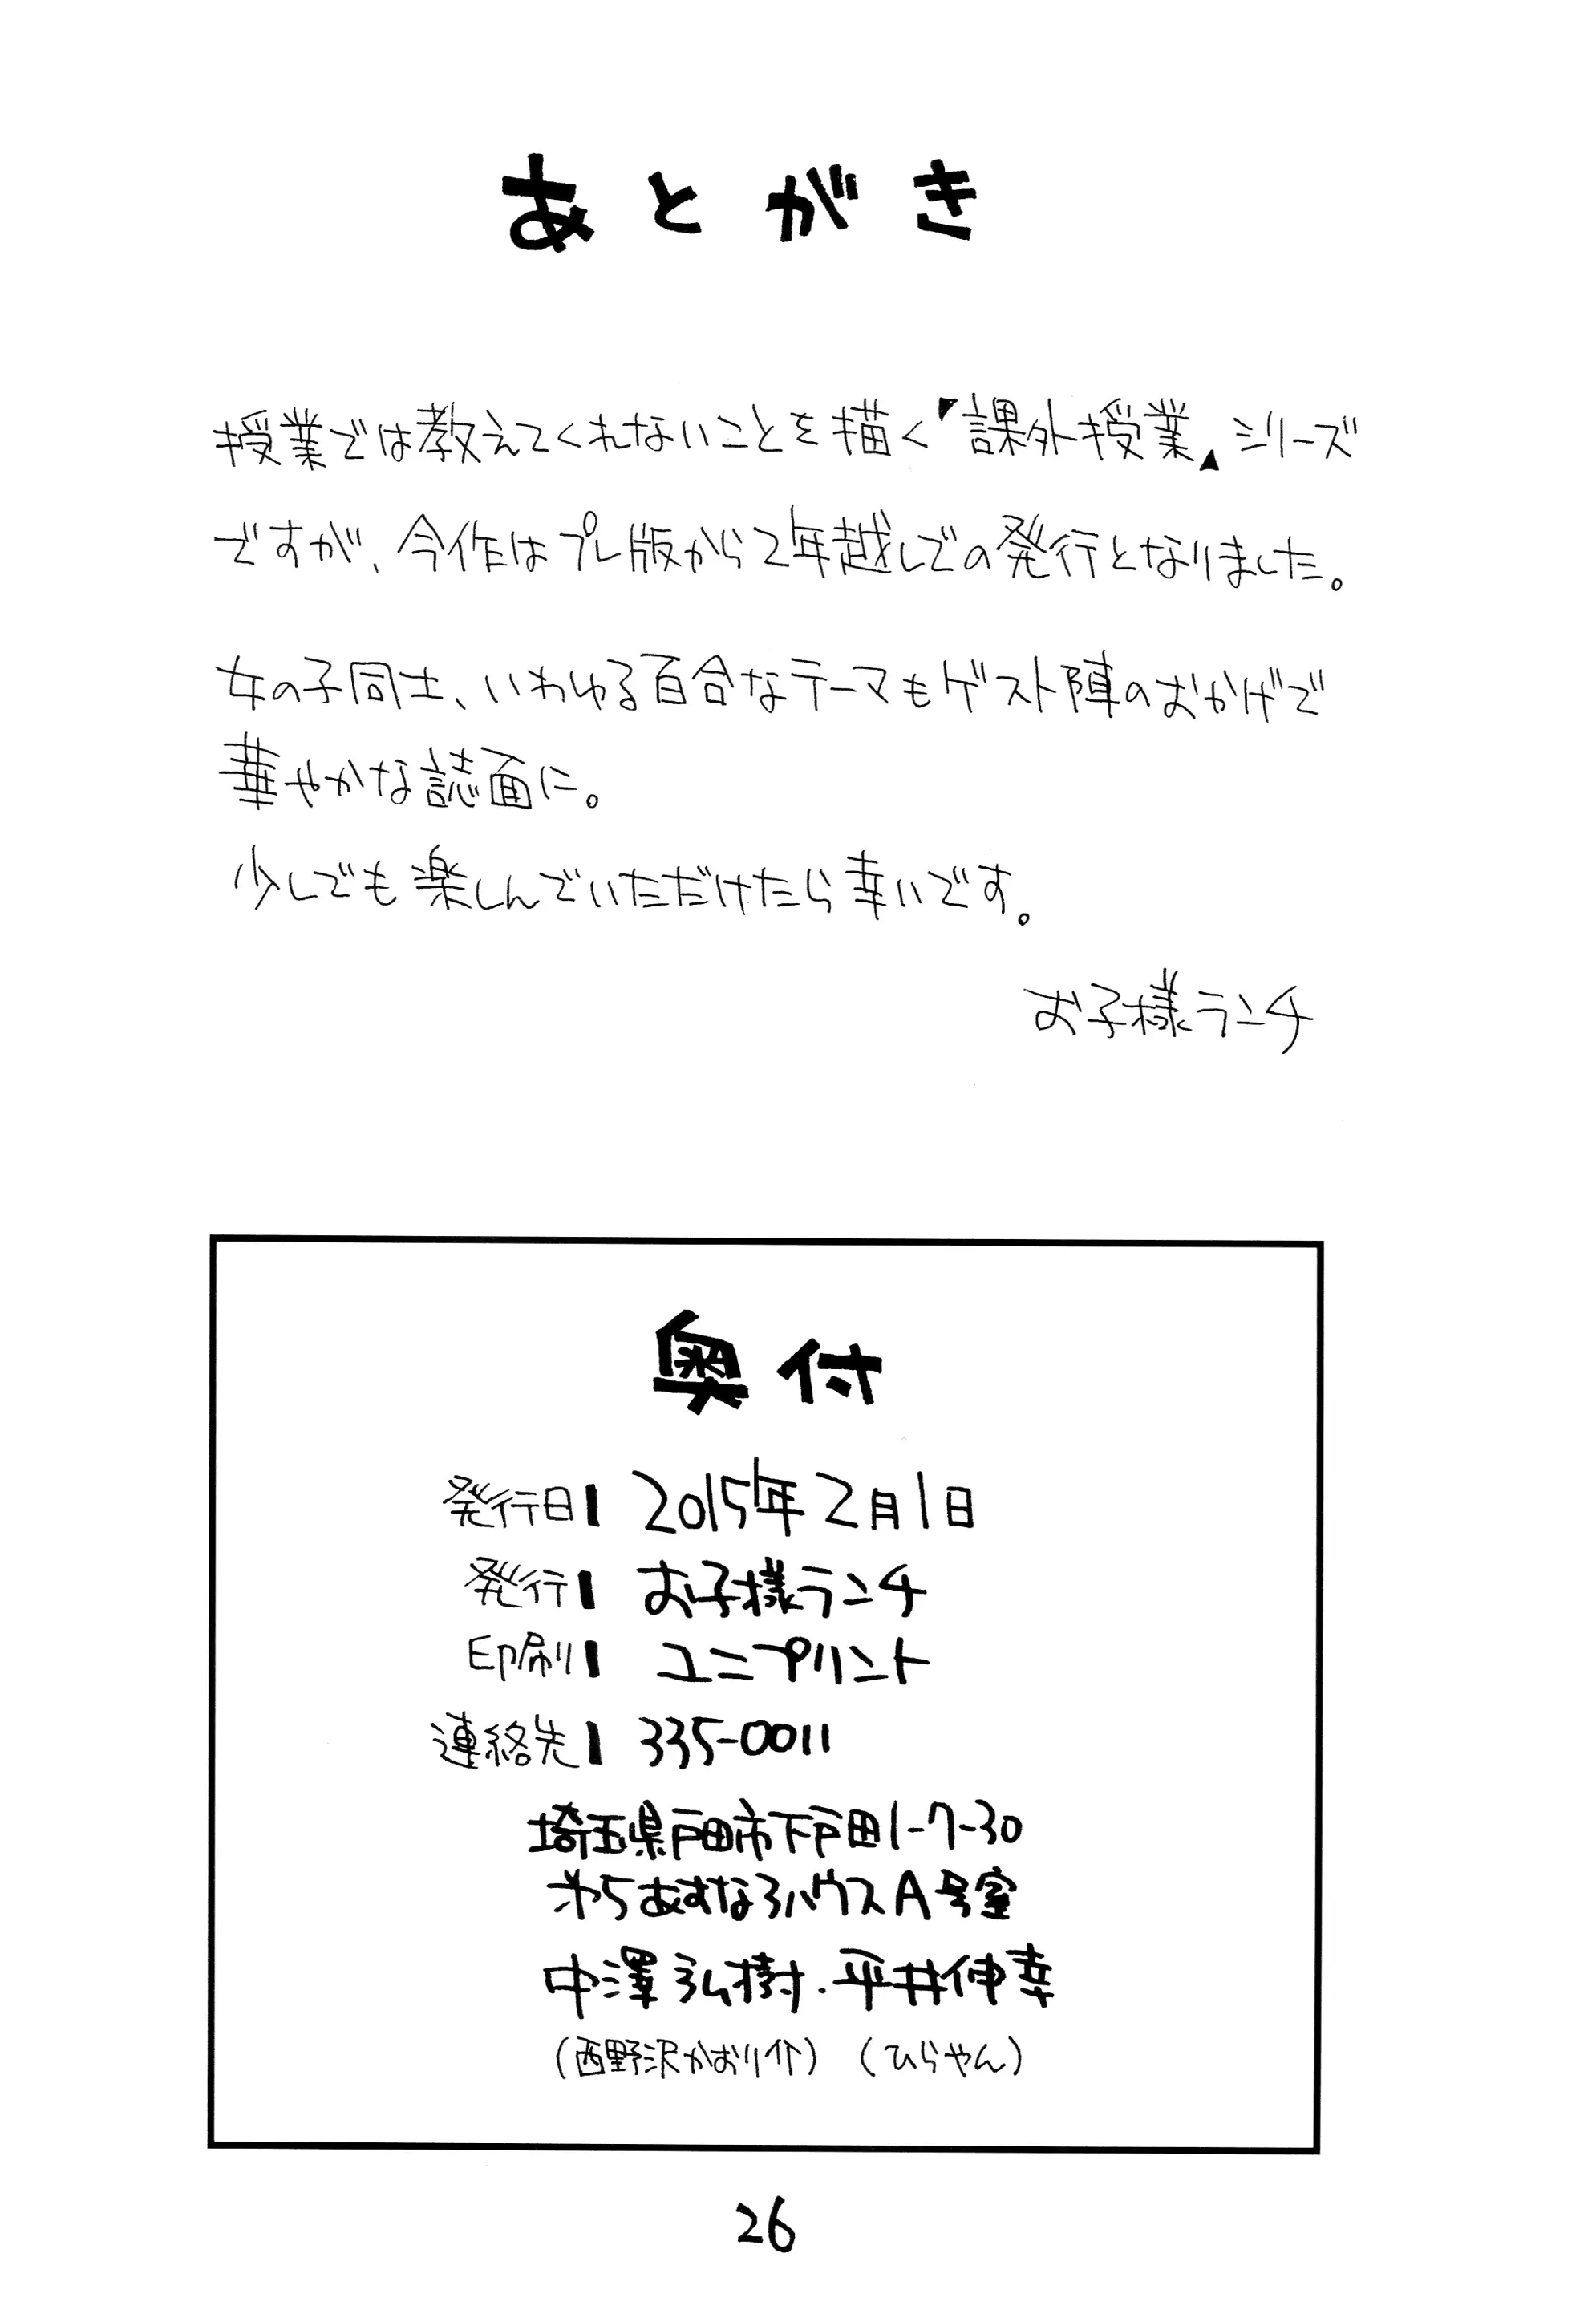 あとがき
授業では教えてくれないことを描く『課外授業』シリーズ
ですが、今作はプレ版から2年越しでの発行となりました。
女の子同士、いわゆる百合なテーマもゲスト陣のおかげで
華やかな誌面に。
少しでも楽しんでいただけたら幸いです。
お子様ランチ
奥付
発行日 2015年2月1日
発行 お子様ランチ
印刷 ユニプリント
連絡先 335-0011
埼玉県戸田市下戸田1-7-30
第5あすなろハウスA号室
中澤弘樹・平井伸幸
(西野沢かおり介) (ひらやん)
26